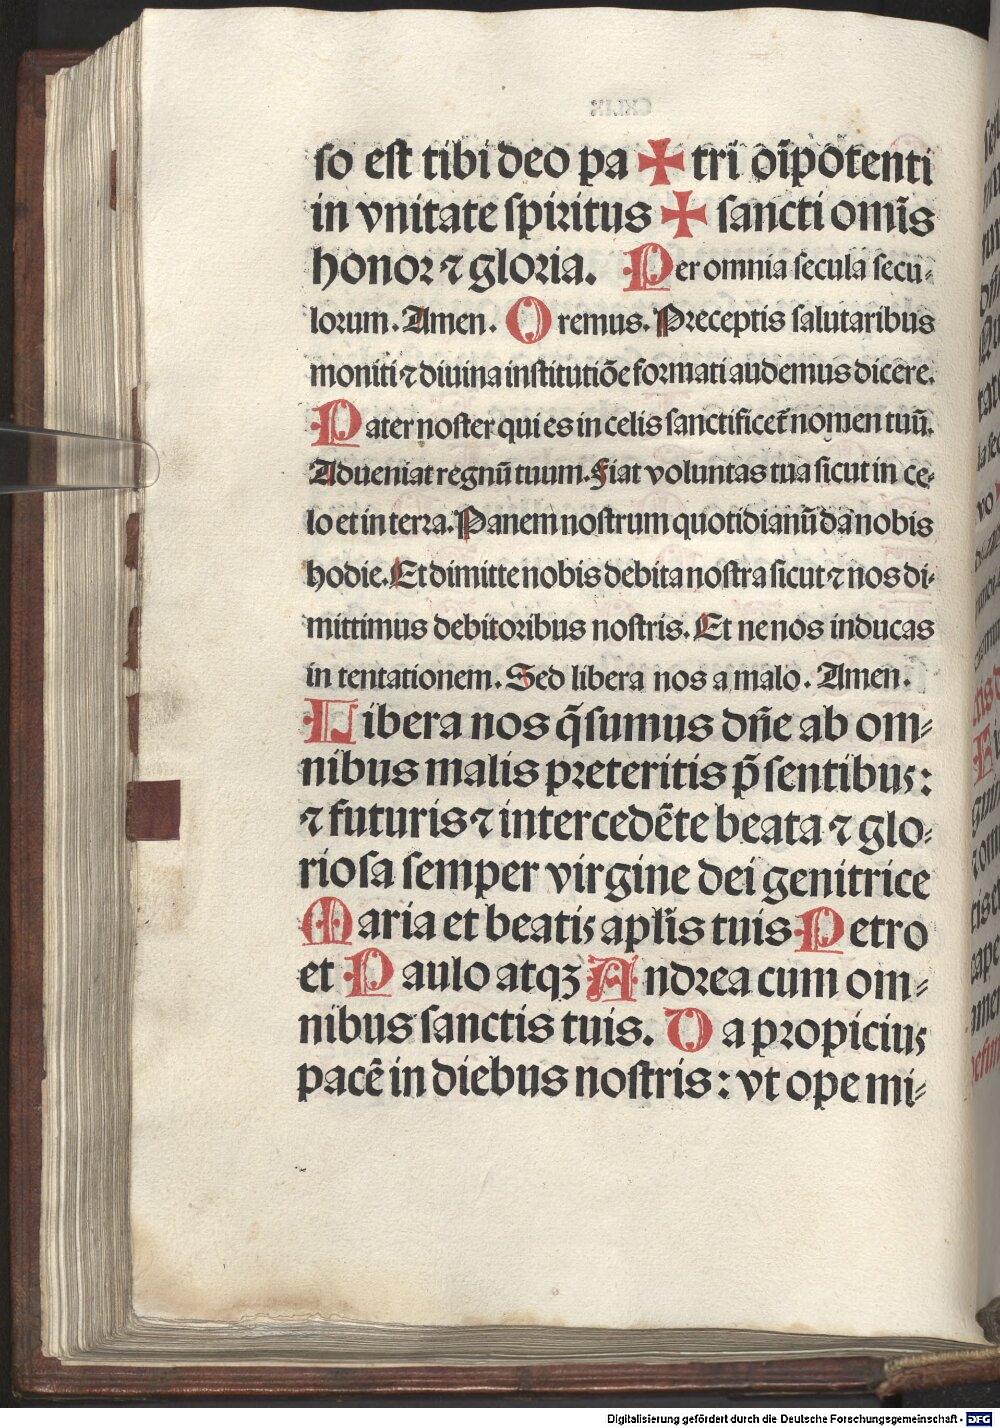 so est tibi deo pa ✠ tri oīpotenti
in vnitate spiritus ✠ sancti omīs
honor ⁊ gloria. Per omnia secula secu-
lorum. Amen. Oremus. Preceptis salutaribus
moniti ⁊ diuina institutiōe formati audemus dicere.
Pater noster qui es in celis sanctificet̄ nomen tuū.
Adueniat regnū tuum. Fiat voluntas tua sicut in ce-
lo et in terra. Panem nostrum quotidianū da nobis
hodie. Et dimitte nobis debita nostra sicut ⁊ nos di-
mittimus debitoribus nostris. Et ne nos inducas
in tentationem. Sed libera nos a malo. Amen.
Libera nos q̄sumus dn̄e ab om-
nibus malis preteritis p̄sentibuꝫ:
⁊ futuris ⁊ intercedēte beata ⁊ glo-
riosa semper virgine dei genitrice
Maria et beatiꝫ apl̄is tuis Petro
et Paulo atqꝫ Andrea cum om-
nibus sanctis tuis. Da propiciuꝫ
pacē in diebus nostris: vt ope mi-
Digitalisierung gefördert durch die Deutsche Forschungsgemeinschaft - DFG